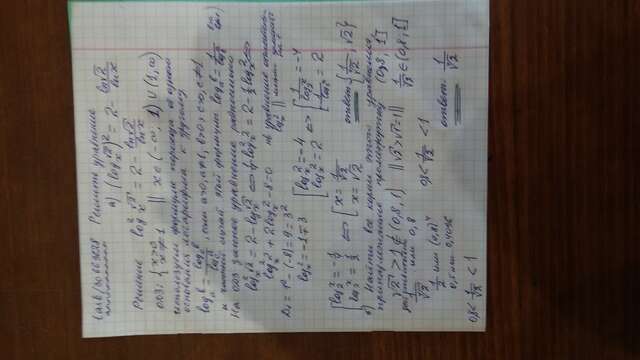 Решите уравнение
а) (log_x^√2)² = 2 - ln√2/ln x
Решение log²_x √2 = 2 - ln√2/ln x
ОДЗ: { x>0 x≠1 || x∈(-∞, 1) ∪ (1, ∞)
используем формулу перехода от одного
основания логарифма к другому
если a>0, a≠1, b>0, c>0, c≠1
и частный случай этой формулы
На ОДЗ данное уравнение равносильно
log²_x √2 = 2 - log_x √2 ⇔ 1/4 log²_x 2 = 2 - 1/2 log_x 2 ⇔
log²_x 2 + 2log_x 2 - 8 = 0
D₁ = 1² - (-8) = 9 = 3²
log_x 2 = -1 ∓ 3
[ log_x 2 = -4 log_x 2 = 2 ⇔ [ 1/log_2 x = -4 1/log_2 x = 2
[ log_2 x = -1/4 log_2 x = 1/2 ⇔ [ x = 1/⁴√2 x = √2
ответ {1/⁴√2, √2}
Найти все корни этого уравнения,
принадлежащие промежутку (0,8, 1]
√2 > 1 ∉ (0,8, 1) || √2 > √1 = 1 ||
1/⁴√2 ∈ (0,8, 1]
1/⁴√2 или 0,8
0,8 < 1/⁴√2 < 1
1/2 или (0,8)⁴
0,5 или 0,4096
ответ 1/⁴√2
0,8 < 1/⁴√2 < 1